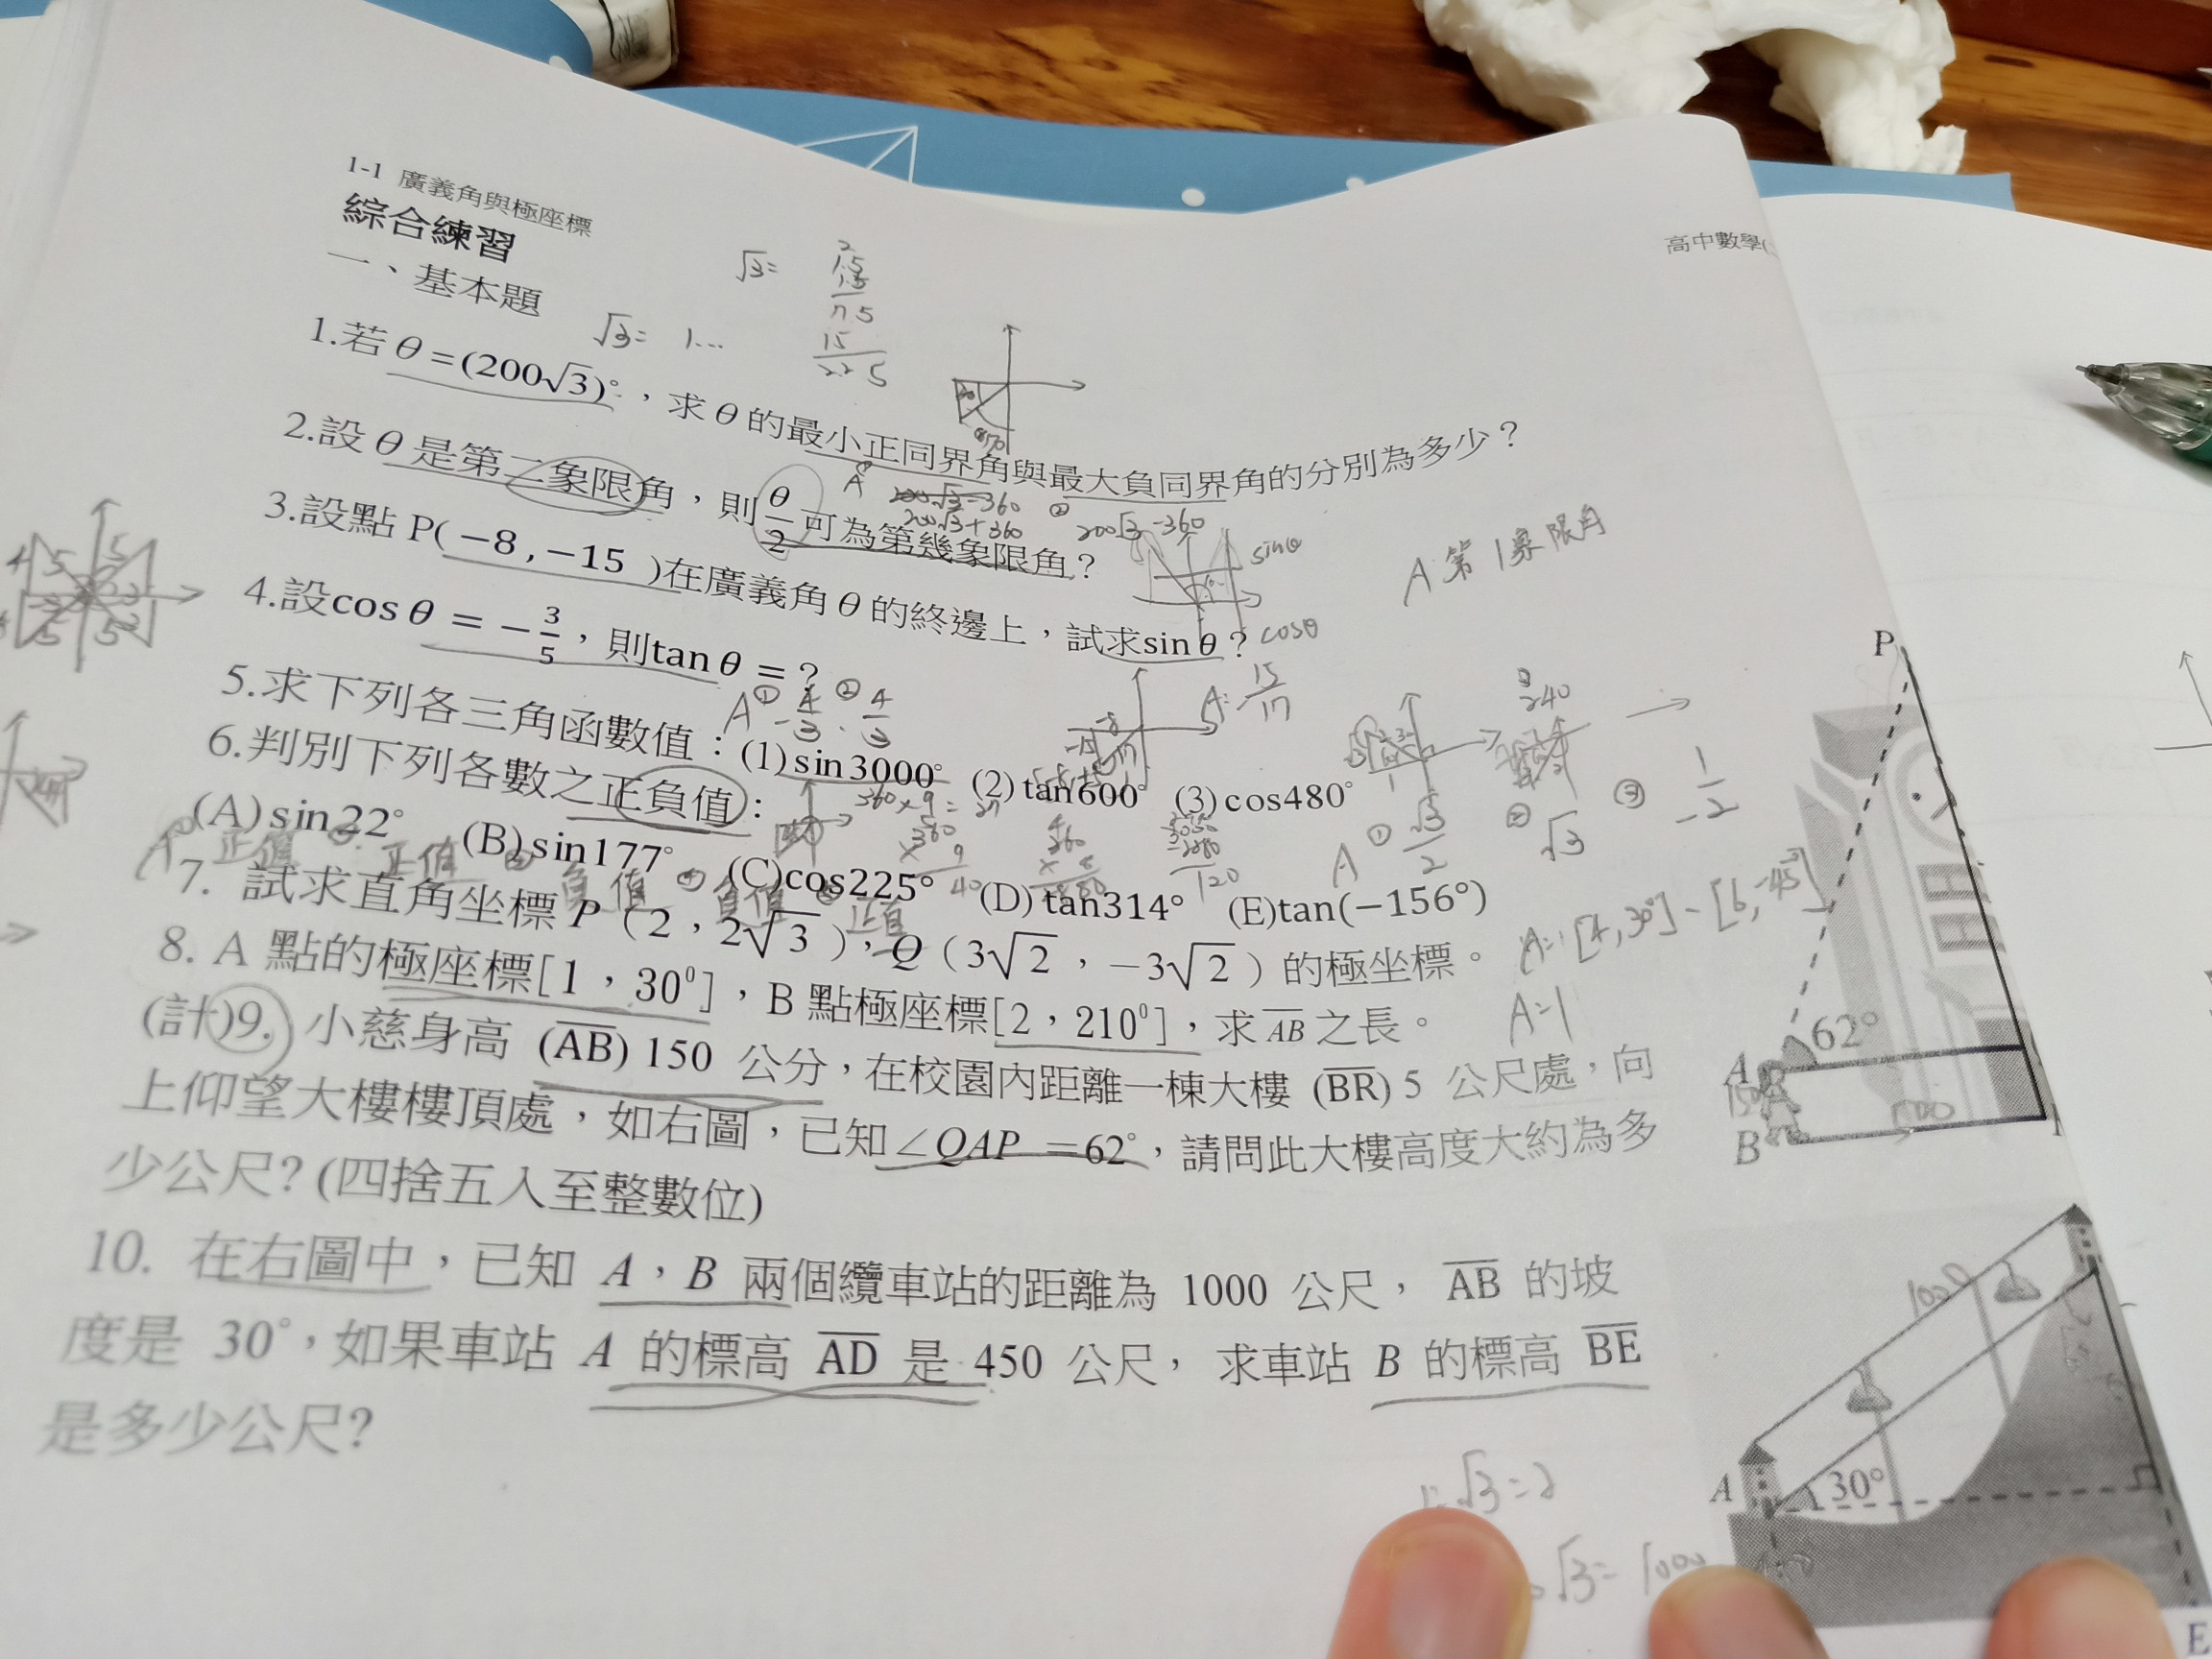 1-1 廣義角與極座標
高中數學(
綜合練習
一、基本題
√3=
√3= 1...
1.若 θ=(200√3)°，求 θ 的最小正同界角與最大負同界角的分別為多少？
200√3+360 ② 200√3-360
2.設 θ 是第二象限角，則 θ/2 可為第幾象限角？
A:第1象限角
sinθ
cosθ
3.設點 P(−8,−15 )在廣義角 θ 的終邊上，試求sin θ？
A:-15/17
4.設cos θ = −3/5，則tan θ = ?
A ① -4/3 . ② 4/3
5.求下列各三角函數值：(1)sin3000° (2)tan600° (3)cos480°
A ① √3/2 ② √3 ③ -1/2
6.判別下列各數之正負值：
(A)sin22° (B)sin177° (C)cos225° (D)tan314° (E)tan(−156°)
正值 正值 負值 負值 正值
7. 試求直角坐標 P（2，2√3），Q（3√2，−3√2）的極坐標。
A=[4,30°]-[6,-45°]
8. A 點的極座標[1，30⁰]，B 點極座標[2，210⁰]，求 AB 之長。
A=1
(計)9. 小慈身高 (AB) 150 公分，在校園內距離一棟大樓 (BR) 5 公尺處，向
上仰望大樓樓頂處，如右圖，已知∠QAP =62°，請問此大樓高度大約為多
少公尺?(四捨五入至整數位)
P
62°
A
150
B
500
10. 在右圖中，已知 A，B 兩個纜車站的距離為 1000 公尺， AB 的坡
度是 30°，如果車站 A 的標高 AD 是 450 公尺， 求車站 B 的標高 BE
是多少公尺?
1000
A
30°
E
√3=2
√3=1000